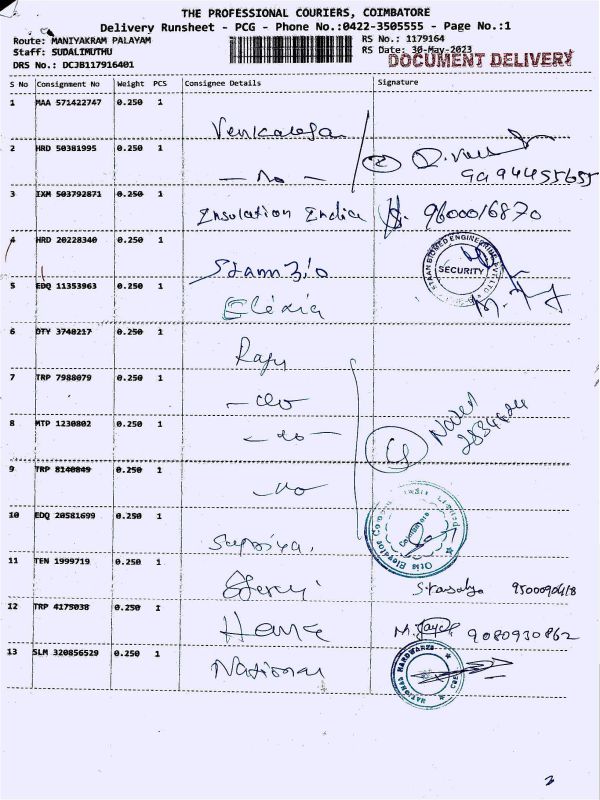 THE PROFESSIONAL COURIERS, COIMBATORE
Delivery Runsheet - PCG - Phone No.:0422-3505555 - Page No.:1
Route: MANIYAKRAM PALAYAM RS No.: 1179164
Staff: SUDALIMUTHU RS Date: 30-May-2023
DRS No.: DCJB117916401 DOCUMENT DELIVERY
S No Consignment No Weight PCS Consignee Details Signature
1 MAA 571422747 0.250 1
2 HRD 50381995 0.250 1
3 IXM 503792871 0.250 1 Insulation India 9600016870
4 HRD 20228340 0.250 1
STAAN BIOMED ENGINEERING PVT LTD
SECURITY
5 EDQ 11353963 0.250 1
6 DTY 3740217 0.250 1 Raju
7 TRP 7988079 0.250 1 - do
8 MTP 1230802 0.250 1 - do -
9 TRP 8140849 0.250 1 - do
10 EDQ 20581699 0.250 1 Supriya.
Otis Elevator Company India Limited
Coimbatore
11 TEN 1999719 0.250 1
12 TRP 4175038 0.250 1 9080930862
13 SLM 320856529 0.250 1 National
NATIONAL HARDWARES